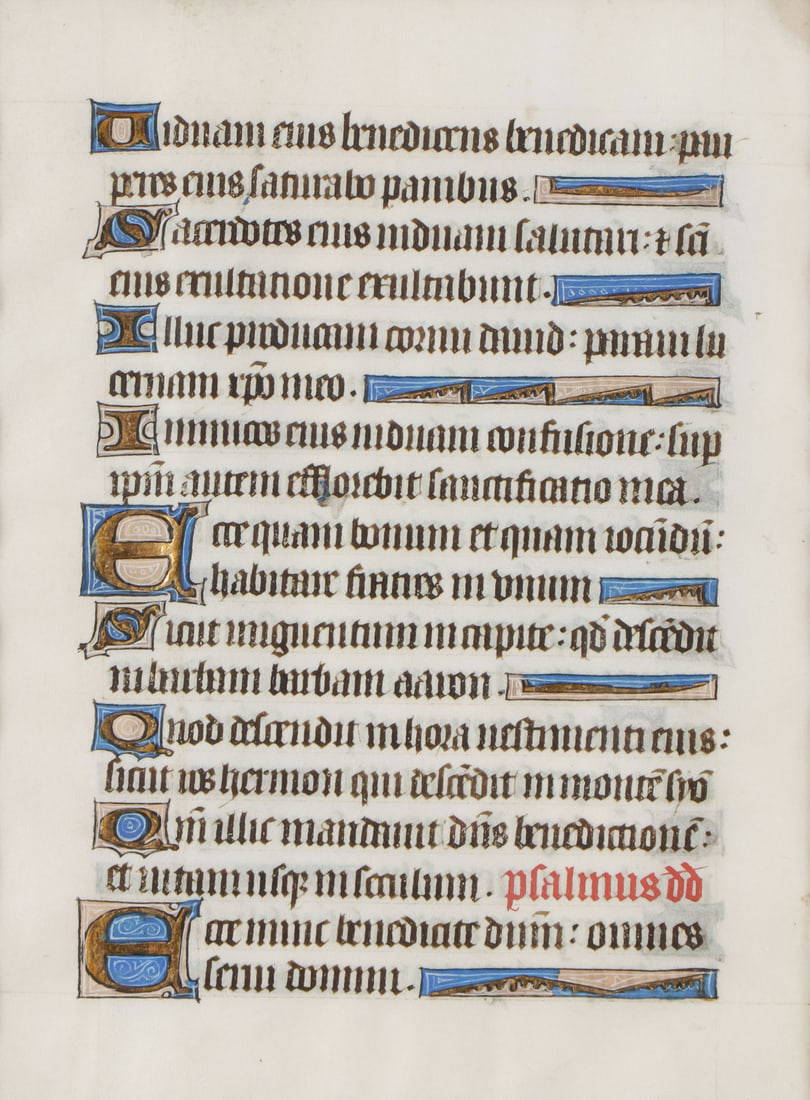 Uiduam eius benedicens benedicam: pau
peres eius saturabo panibus.
Sacerdotes eius induam salutari: ⁊ sc̄i
eius exultatione exultabunt.
Illuc producam cornu dauid: paraui lu
cernam xp̄o meo.
Inimicos eius induam confusione: sup
ip̄m autem efflorebit sanctificatio mea.
Ecce quam bonum et quam iocūdū:
habitare fratres in vnum
Sicut unguentum in capite: qd̄ descēdit
in barbam barbam aaron.
Quod descendit in hora uestimenti eius:
sicut ros hermon qui descēdit in montē syō
Qm̄ illic mandauit dn̄s benedictionē:
et uitam usq; in seculum. psalmus dd
Ecce nunc benedicite dnm̄: omnes
serui domini.